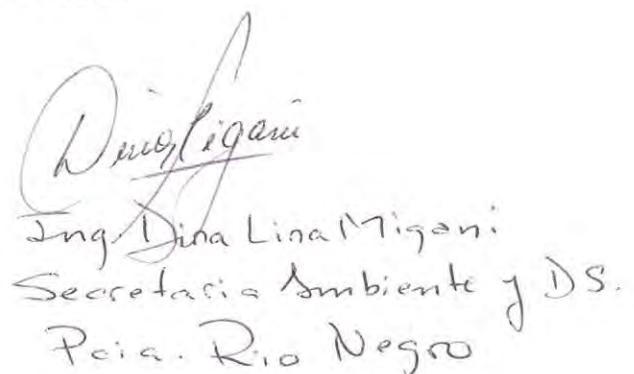 Dina Migani
Ing. Dina Lina Migani
Secretaria Ambiente y DS.
Pcia. Rio Negro